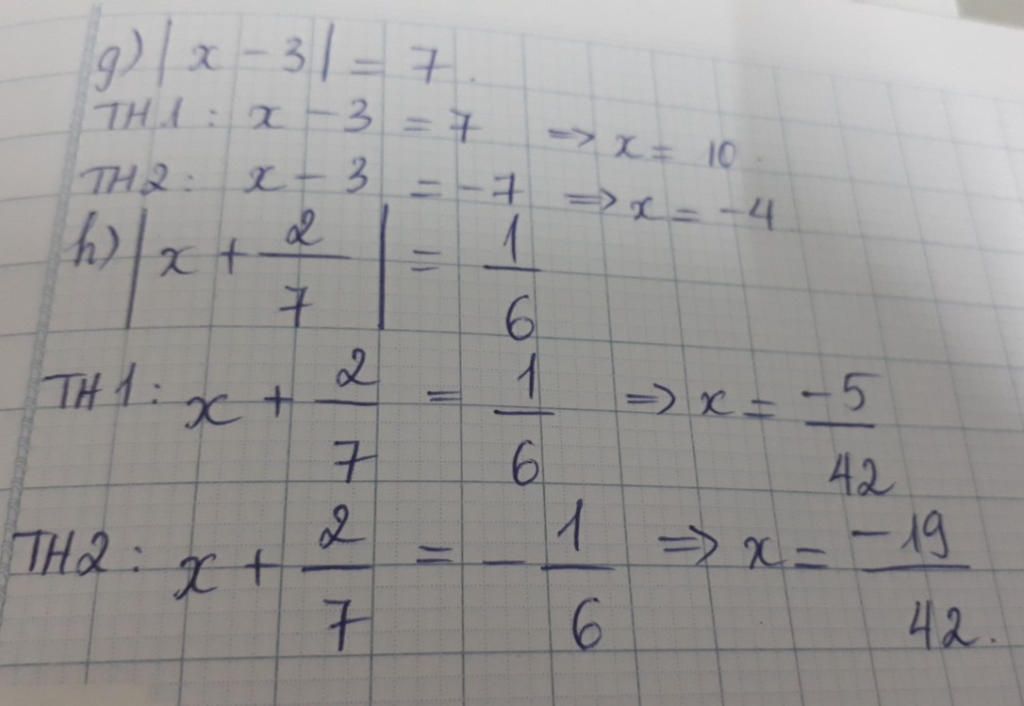 g) |x - 3| = 7.
TH1: x - 3 = 7 => x = 10.
TH2: x - 3 = -7 => x = -4
h) |x + 2/7| = 1/6
TH1: x + 2/7 = 1/6 => x = -5/42
TH2: x + 2/7 = -1/6 => x = -19/42.